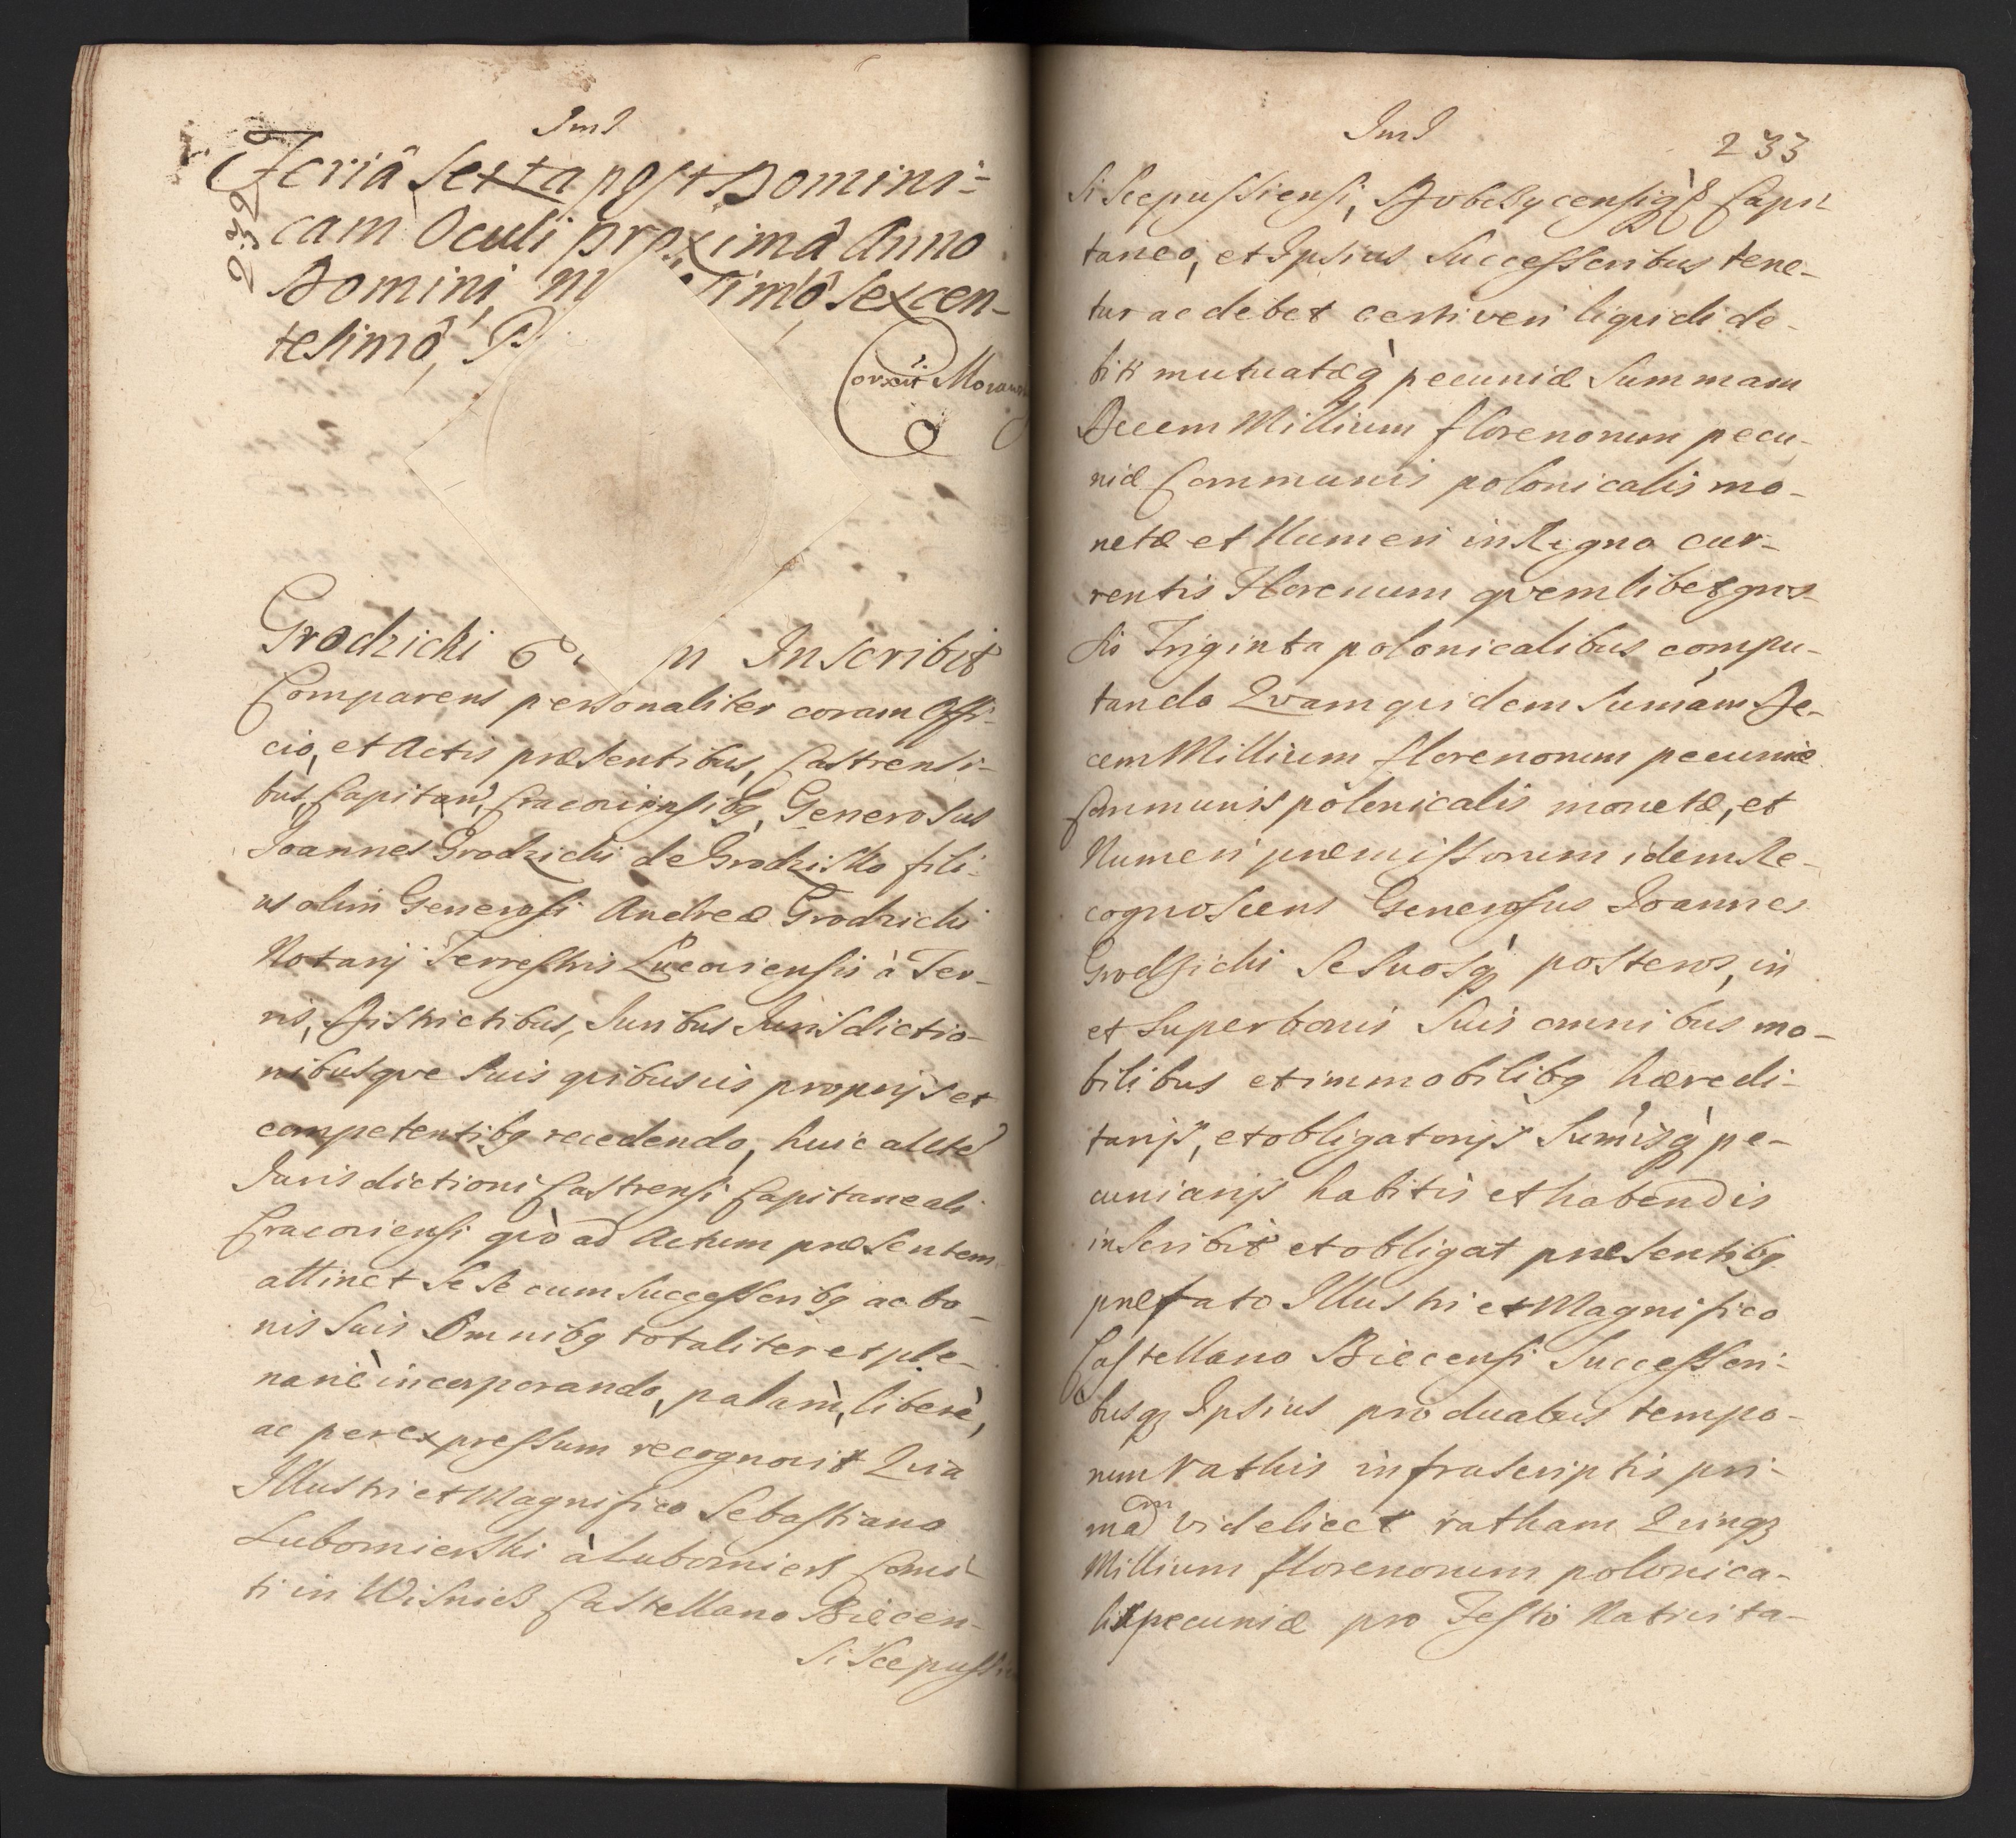 Jmd
232
Feriâ Sexta post Domini-
cam Oculi proximâ Anno
Domini, M timô Sexcen-
tesimô,
Corxit
Grodzicki In Scribit
Comparens personaliter coram Offi-
cio, et Actis præsentibus, Castrensi-
bus, Capitan, Cracoviensibq, Generosus
Joannes Grodzicki de Grodzisko fili-
us olim Generosi Andreæ Grodzicki
Notarij Terrestris Luceoriensis à Ter-
ris, Districtibus, Juribus Jurisdictio-
nibusqve Suis qvibusvis proprijs et
competentibq recedendo, huic al
Jurisdictioni Castrensi Capitaneali
Cracoviensi qvò ad Actum præsentem
attinet Se Se cum Successoribq ac bo-
nis Suis Omnibq totaliter et ple-
nariè incorporando, palàm, liberè,
ac per expressum recognovit Qvia
Illustri et Magnifico Sebastiano
Lubomierski à Lubomierz Comi-
ti in Wisnicz Castellano Biecen-
Si Scepuss
Jmd
233
Si Scepussiensi, Dobczycensiqz Capi-
taneo, et Ipsius Successoribus tene-
tur ac debet certi veri liqvidi de-
biti mutuatæq pecuniæ Summam
Decem Millium florenorum pecu-
niæ Communis polonicalis mo-
netæ et Numeri in Regno cur-
rentis Florenum qvemlibet gros-
sis Triginta polonicalibus compu-
tando Qvam qvidem Sumam De-
cem Millium florenorum pecuniæ
Communis polonicalis monetæ, et
Numeri præmissorum idem Re-
cognoscens Generosus Joannes
Grodzicki Se Suosq posteros, in
et Super bonis Suis omnibus mo-
bilibus et immobilibq hæredi-
tarijs, et obligatorijs Sumisq pe-
cuniarijs habitis et habendis
inscribit et obligat præsentibq
præfato Illustri et Magnifico
Castellano Biecensi Successori-
busqz Ipsius pro duabus tempo-
rum rathis infrascriptis pri-
mam videlicet ratham Qvinqz
Millium florenorum polonica-
lis pecuniæ pro Festo Nativita-